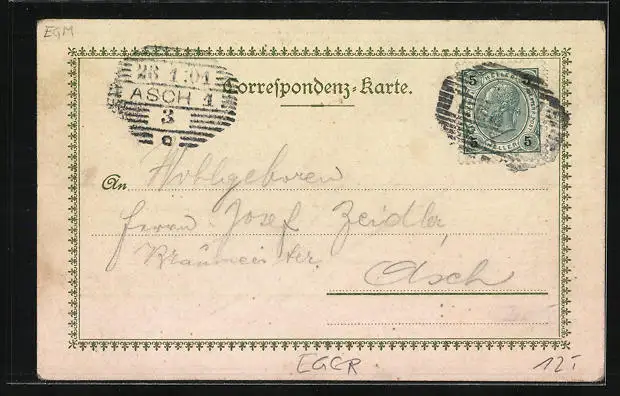 EGM
26 1:01
ASCH 1
3
Correspondenz-Karte.
5 5
HELLER
5 5
An Wohlgeboren
Herrn Josef Zeidler,
Bräumeister.
Asch
EGER
12.-